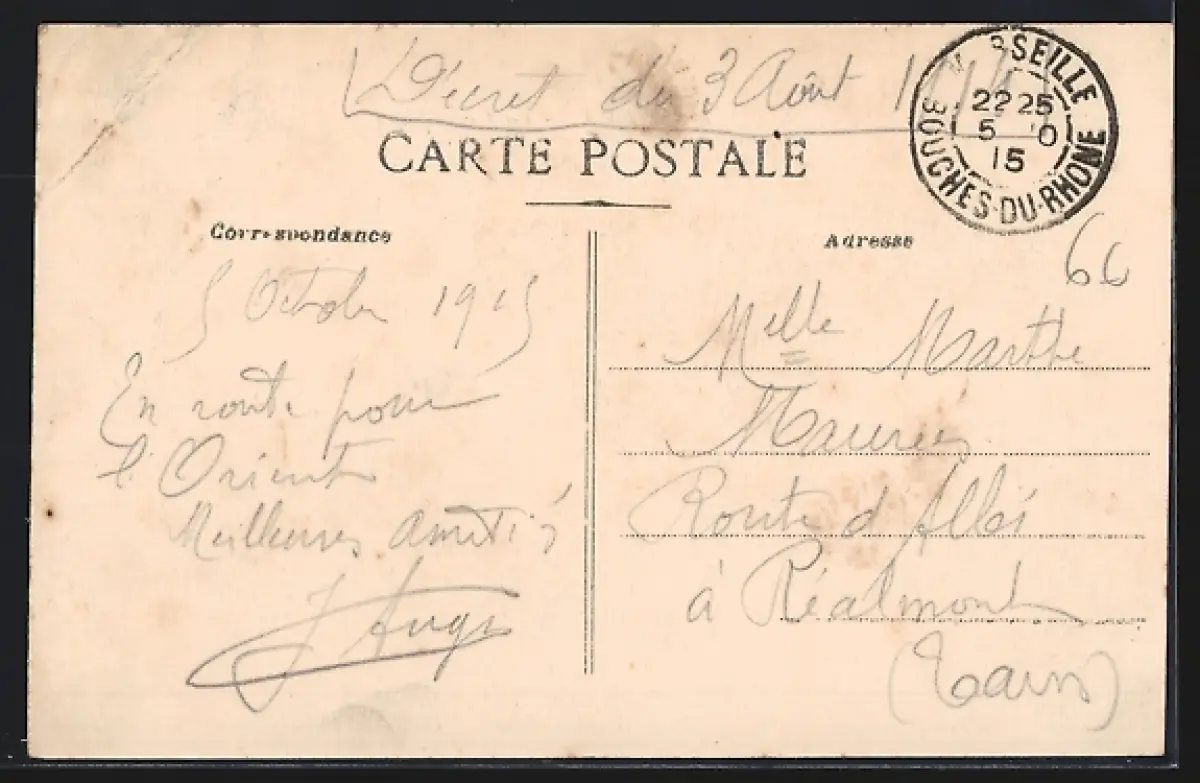 Décret du 3 Août 1914
CARTE POSTALE
MARSEILLE
22 25
5 10
15
BOUCHES-DU-RHONE
Correspondance
Adresse
66
5 Octobre 1915
En route pour
l'Orient
Meilleures amitiés
J Augé
Melle Marthe
Mauriès
Route d'Albi
à Réalmont
(Tarn)